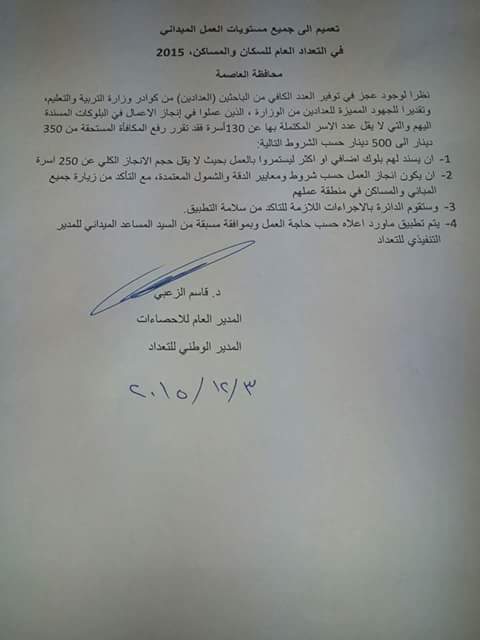 تعميم الى جميع مستويات العمل الميداني
في التعداد العام للسكان والمساكن، 2015
محافظة العاصمة
نظرا لوجود عجز في توفير العدد الكافي من الباحثين (العدادين) من كوادر وزارة التربية والتعليم،
وتقديرا للجهود المميزة للعدادين من الوزارة ، الذين عملوا في إنجاز الاعمال في البلوكات المسندة
اليهم والتي لا يقل عدد الاسر المكتملة بها عن 130أسرة فقد تقرر رفع المكافأة المستحقة من 350
دينار الى 500 دينار حسب الشروط التالية:
1- ان يسند لهم بلوك اضافي او اكثر ليستمروا بالعمل بحيث لا يقل حجم الانجاز الكلي عن 250 اسرة
2- ان يكون انجاز العمل حسب شروط ومعايير الدقة والشمول المعتمدة، مع التأكد من زيارة جميع
المباني والمساكن في منطقة عملهم
3- وستقوم الدائرة بالاجراءات اللازمة للتاكد من سلامة التطبيق.
4- يتم تطبيق ماورد اعلاه حسب حاجة العمل وبموافقة مسبقة من السيد المساعد الميداني للمدير
التنفيذي للتعداد
د. قاسم الزعبي
المدير العام للاحصاءات
المدير الوطني للتعداد
٢٠١٥/١٢/٣